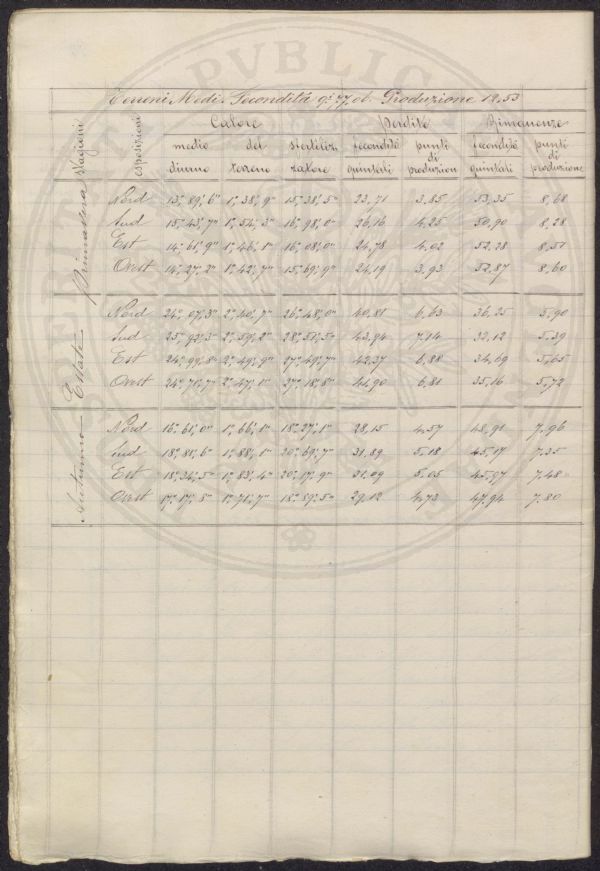 Terreni Medi. Fecondità q.i 77,06. Produzione 12,53
Stagioni esposizioni Calore Perdite Rimanenze
medio del sterilizz fecondità punti fecondità punti
di di
diurno terreno zatore quintali produzion quintali produzione
Primavera
Nord 13°,89',6" 1°,38',9" 15°,38',5" 23,71 3,85 53,35 8,68
Sud 15°,43',7" 1°,54',3" 16°,98',0" 26,16 4,25 50,90 8,28
Est 14°,61',9" 1°,46',1" 16°,08',0" 24,78 4,02 52,28 8,51
Ovest 14°,27',2" 1°,42',7" 15°,69',9" 24,19 3,93 52,87 8,60
Estate
Nord 24°,07',3" 2°,40',7" 26°,48',0" 40,81 6,63 36,25 5,90
Sud 25°,93',3" 2°,59',2" 28°,51',5" 43,94 7,14 33,12 5,39
Est 24°,99',8" 2°,49',9" 27°,49',7" 42,37 6,88 34,69 5,65
Ovest 24°,71',7" 2°,47',1" 27°,18',8" 41,90 6,81 35,16 5,72
Autunno
Nord 16°,61',0" 1°,66',1" 18°,27',1" 28,15 4,57 48,91 7,96
Sud 18°,81',6" 1°,88',1" 20°,69',7" 31,89 5,18 45,17 7,35
Est 18°,34',5" 1°,83',4" 20°,17',9" 31,09 5,05 45,97 7,48
Ovest 17°,17',8" 1°,71',7" 18°,89',5" 29,12 4,73 47,94 7,80